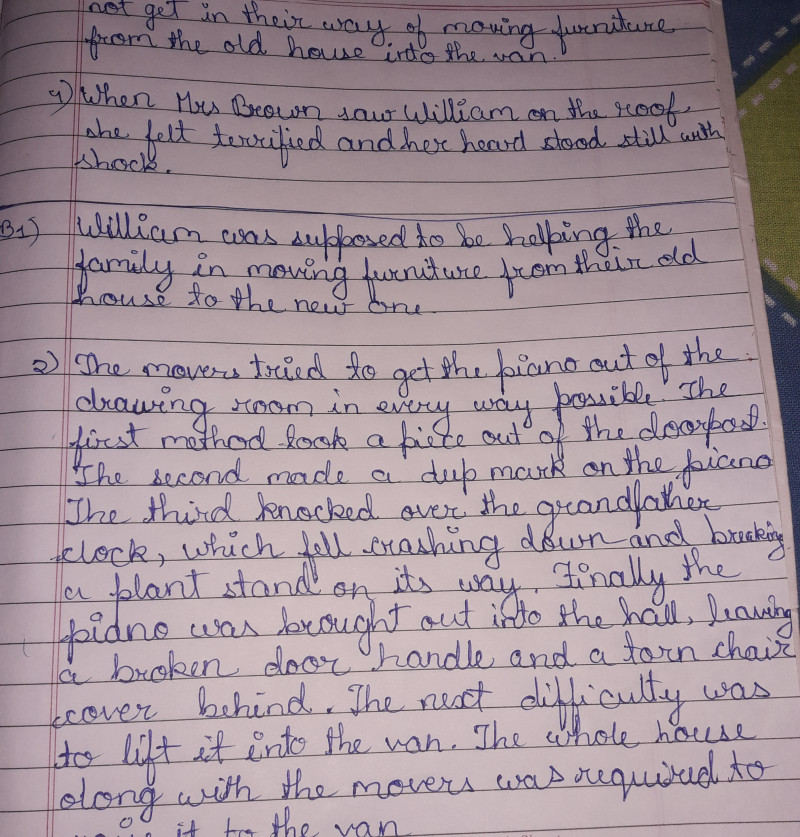 not get in their way of moving furniture
from the old house into the van.
4) When Mrs Brown saw William on the roof,
she felt terrified and her heard stood still with
shock.
B1) William was supposed to be helping the
family in moving furniture from their old
house to the new one.
2) The movers tried to get the piano out of the
drawing room in every way possible. The
first method took a piece out of the doorpost.
The second made a dup mark on the piano
The third knocked over the grandfather
clock, which fell crashing down and breaking
a plant stand on its way. Finally the
piano was brought out into the hall, leaving
a broken door handle and a torn chair
cover behind. The next difficulty was
to lift it into the van. The whole house
along with the movers was required to
it to the van